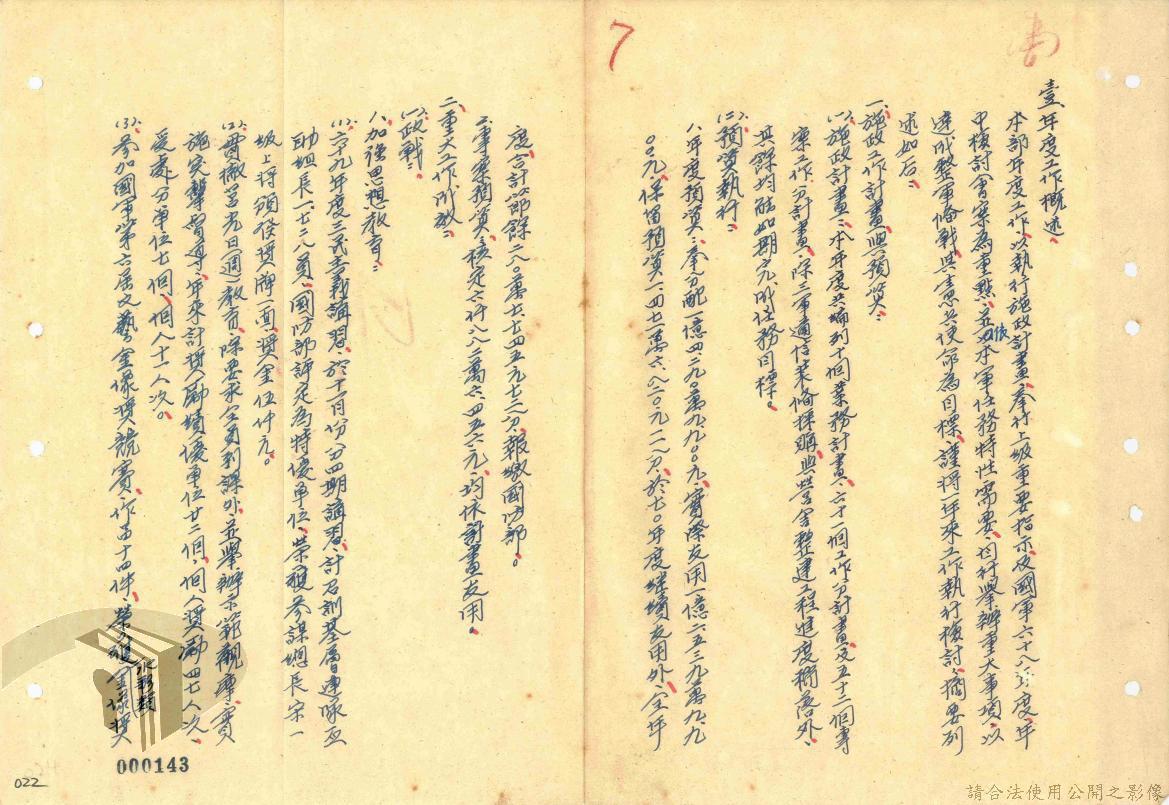 壹、年度工作概述、
本部年度工作、以執行施政計畫、奉行上級重要指示及國軍六十八年度、年
中檢討會案為重點、並依本軍任務特性需要、均行舉辦重大事項、以
達成整軍備戰、與完成使命為目標、謹將一年來工作執行檢討、摘要列
述如后：
一、施政工作計畫與預算：
㈠施政計畫：本年度共編列十個業務計畫、六十一個工作分計畫及五十二個專
案工作、分計畫、除三軍通信裝備採購與營舍整建工程進度稍落外、
其餘均能如期完成任務目標。
㈡預算執行：
1、年度預算：奉分配一億四、二九〇萬九、九〇〇元、實際支用一億二、五三九萬九、九
〇〇元、保留預算一、四七一萬六、八二〇元二八分、於七〇年度繼續支用外、全年
度合計節餘二八〇萬七、七四五元七二分、報繳國防部。
2、專案預算、核定六仟八八二萬六、四五六元、均依計畫支用。
二、重大工作成效：
㈠政戰：
1、加強思想教育：
⑴六九年度三民主義講習、於十一月份分四期講習、計召訓基層連隊正
副組長一、七二八員、國防部評定為特優單位、榮獲參謀總長宋一
級上將頒發獎牌一面、獎金伍仟元。
⑵貫徹莒光日（週）教育、除要求全員到課外、並舉辦示範觀摩、實
施突擊督導、年來計獎勵績優單位廿二個、個人獎勵四七人次、
受處分單位七個、個人十一人次。
⑶參加國軍第六屆文藝金像獎競賽、作品十四件、榮獲金像獎
000143
022
請合法使用公開之影像
7